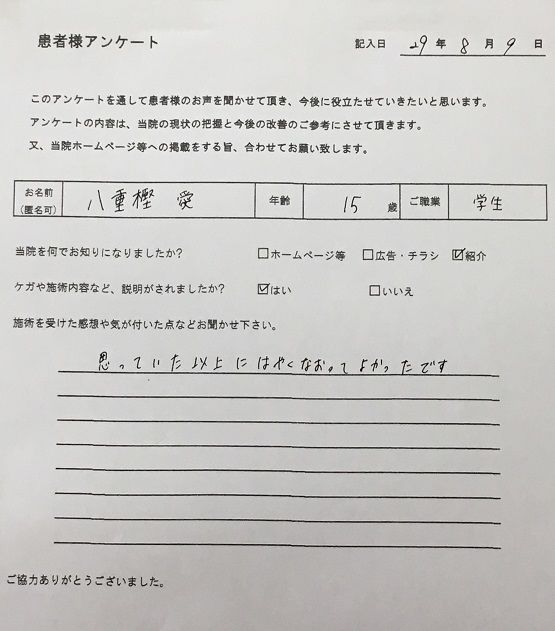 患者様アンケート
記入日 29年8月9日
このアンケートを通して患者様のお声を聞かせて頂き、今後に役立たせていきたいと思います。
アンケートの内容は、当院の現状の把握と今後の改善のご参考にさせて頂きます。
又、当院ホームページ等への掲載をする旨、合わせてお願い致します。
お名前(匿名可) 八重樫 愛 年齢 15歳 ご職業 学生
当院を何でお知りになりましたか? □ホームページ等 □広告・チラシ ☑紹介
ケガや施術内容など、説明がされましたか? ☑はい □いいえ
施術を受けた感想や気が付いた点などお聞かせ下さい。
思っていた以上にはやくなおってよかったです
ご協力ありがとうございました。